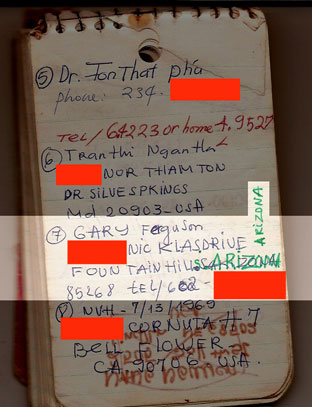 ⑤ Dr. Ton That phú
phone: 234.
TEL/64223 or home 4.9527
⑥ Tranthi Nganth
NOR THAM TON
DR SILVESPKINGS
Md 20903-USA
⑦ GARY Ferguson
NIC KLASDRIVE
FOUNTAIN HILLS ARIZONA
ARIZONA
85268 TEL/602-
NVH- 7/13/1969
CORNUTA # 7
BELL FLOWER
CA. 90706 USA.